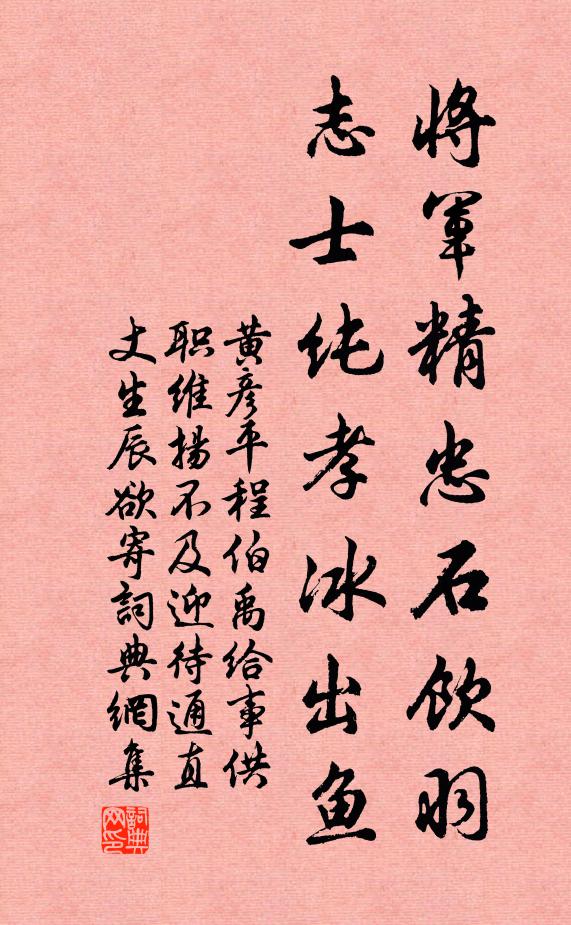 将军精忠石饮羽
志士纯孝冰出鱼
黄彦平程伯禹给事供
职维扬不及迎待通直
丈生辰欲寄詞典網集
詞典网印